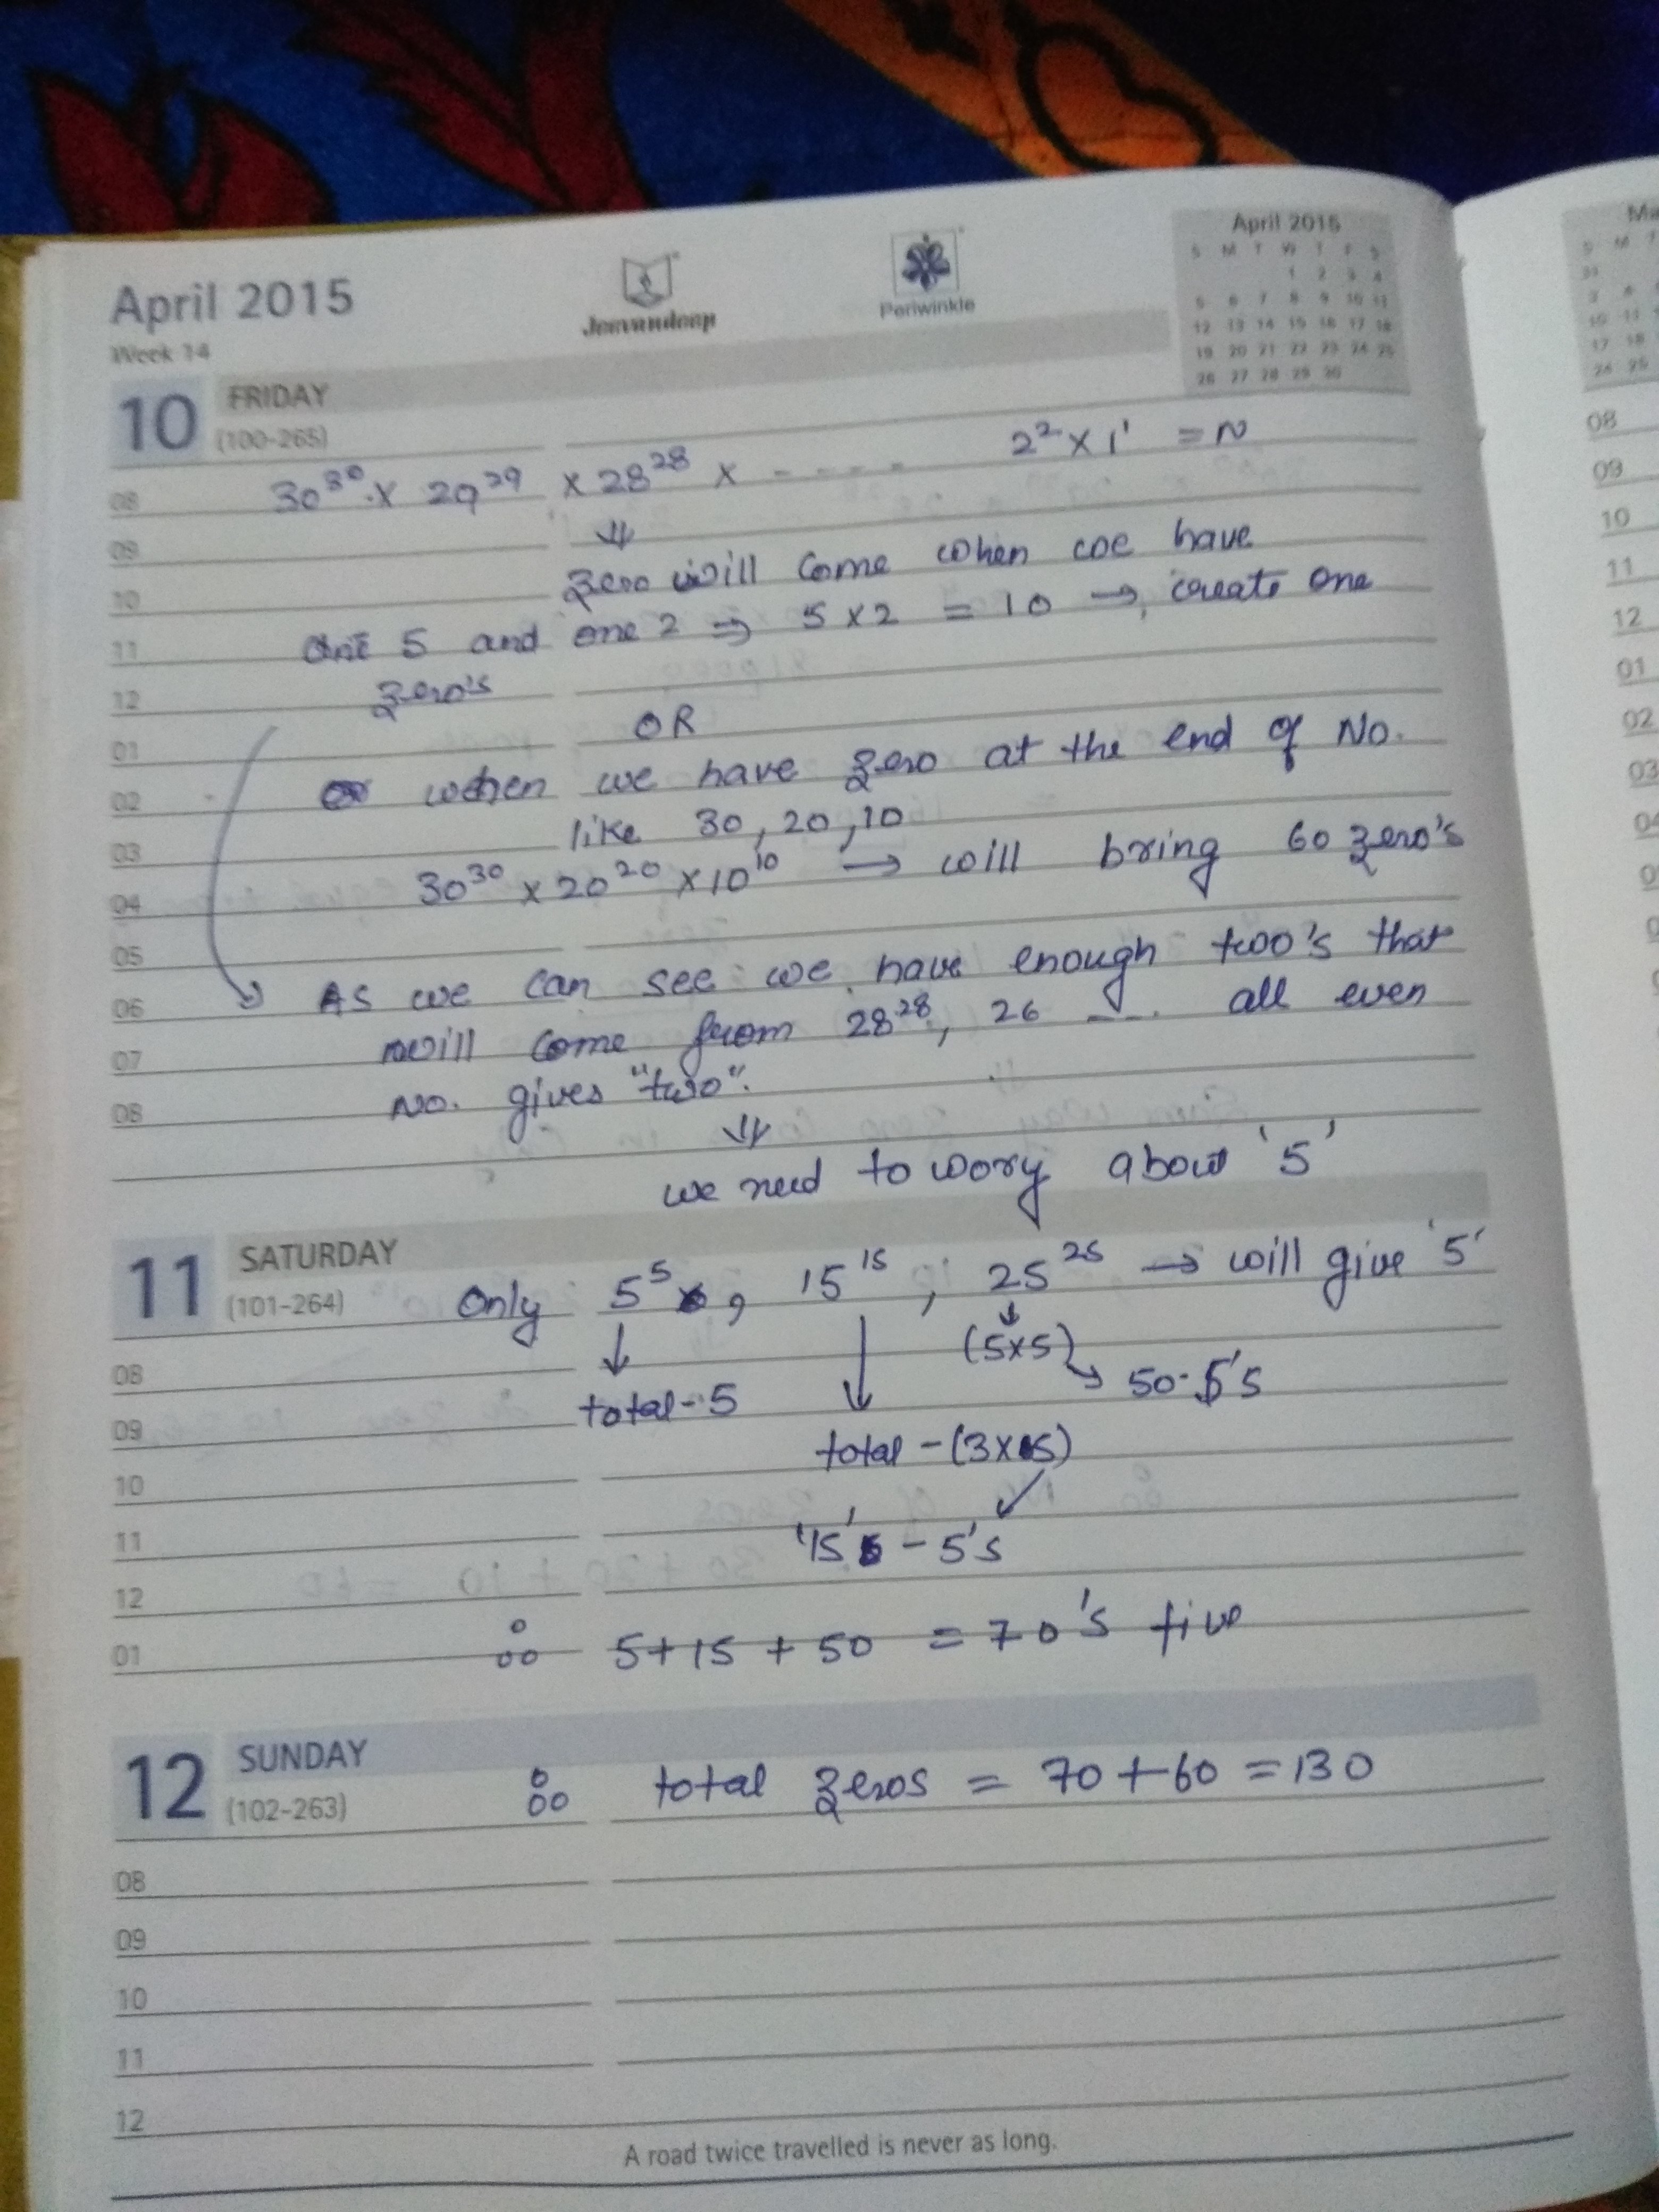 April 2015
Week 14
Jeevandeep
Periwinkle
April 2015
S M T W T F S
1 2 3 4
5 6 7 8 9 10 11
12 13 14 15 16 17 18
19 20 21 22 23 24 25
26 27 28 29 30
10 FRIDAY
(100-265)
30³⁰ x 29²⁹ x 28²⁸ x - - - - 2² x 1¹ = N
08
⇓
09
zero will come when we have
10
one 5 and one 2 ⇒ 5 x 2 = 10 → create one
11
zero's
12
OR
01
when we have zero at the end of No.
02
like 30, 20, 10
03
30³⁰ x 20²⁰ x 10¹⁰ → will bring 60 zero's
04
05
As we can see we have enough two's that
06
will come from 28²⁸, 26 ---. all even
07
No. gives "two".
08
⇓
we need to wory about '5'
11 SATURDAY
(101-264)
Only 5⁵, 15¹⁵, 25²⁵ → will give '5'
(5x5) → 50-5's
08
total-5
09
total-(3x5)
10
'15' - 5's
11
12
∴ 5+15+50 = 70's five
01
12 SUNDAY
(102-263)
∴ total zeros = 70+60 = 130
08
09
10
11
12
A road twice travelled is never as long.
08
09
10
11
12
01
02
03